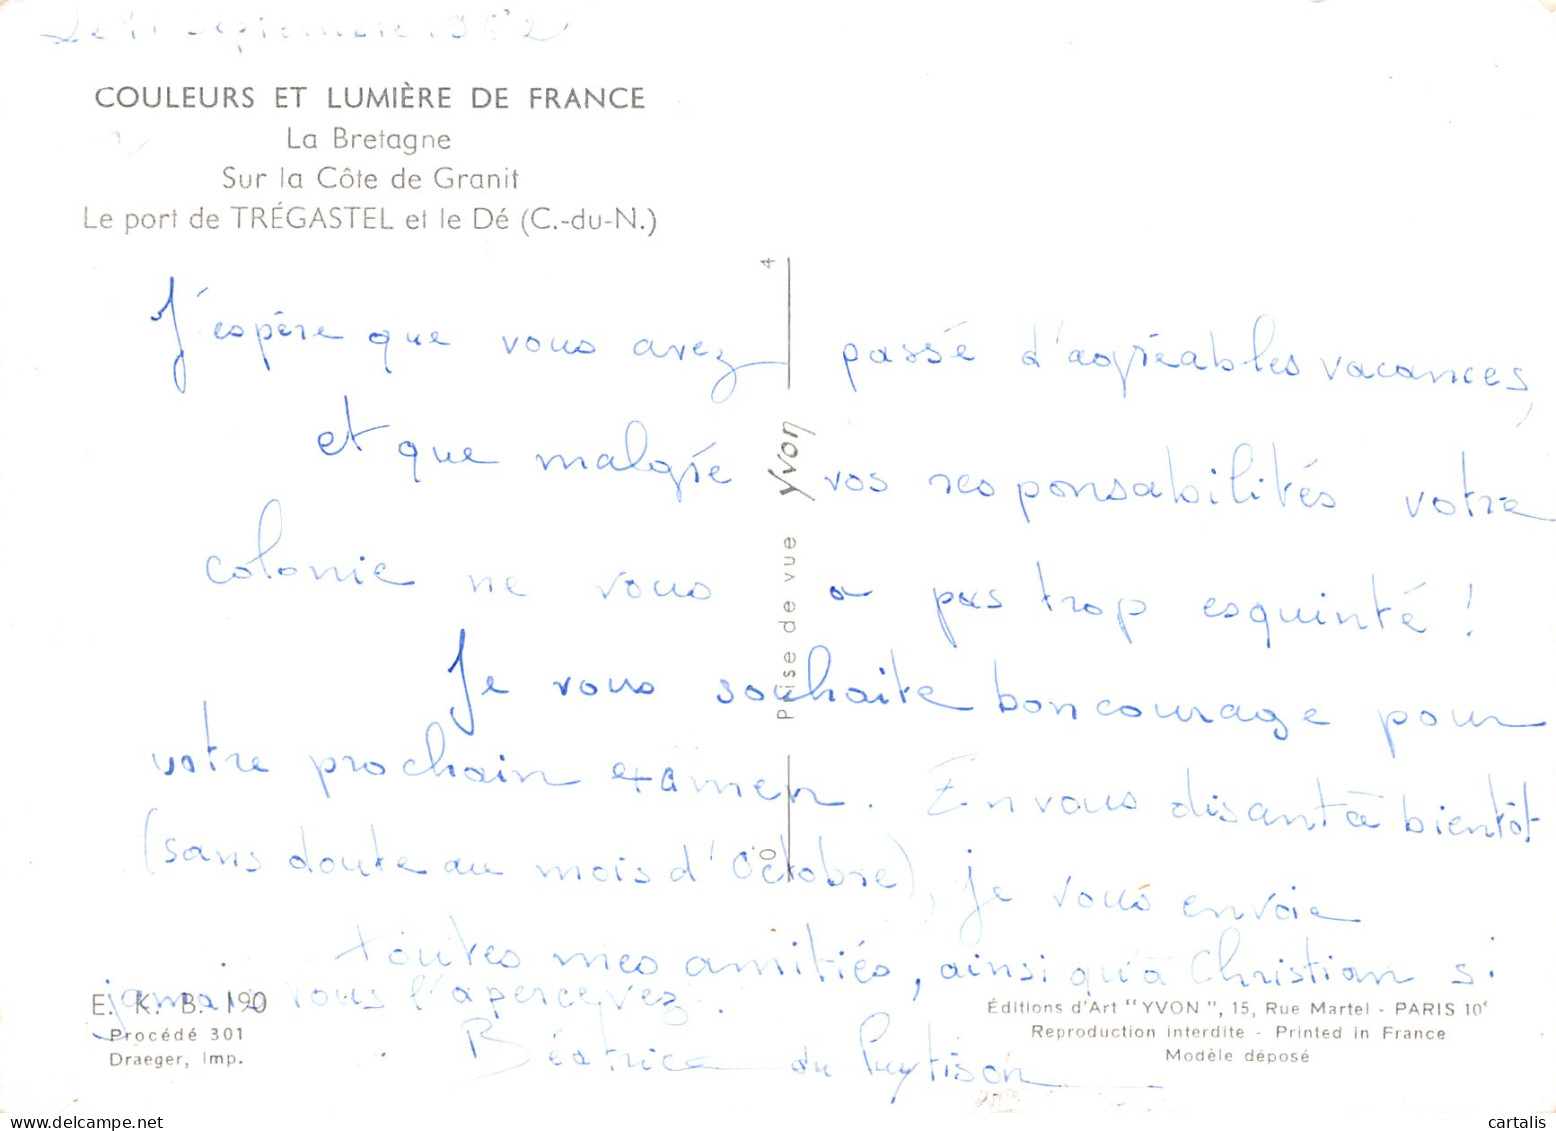 Le 11 septembre 1962
COULEURS ET LUMIÈRE DE FRANCE
La Bretagne
Sur la Côte de Granit
Le port de TRÉGASTEL et le Dé (C.-du-N.)
J'espère que vous avez passé d'agréables vacances,
et que malgré vos responsabilités votre
colonie ne vous a pas trop esquinté !
Je vous souhaite bon courage pour
votre prochain examen. En vous disant à bientôt
(sans doute au mois d'Octobre), je vous envoie
toutes mes amitiés, ainsi qu'à Christian si
jamais vous l'apercevez.
Béatrice du Puytison
4
Yvon
Prise de vue
0
E. K. B. 190
Procédé 301
Draeger, Imp.
Éditions d'Art "YVON", 15, Rue Martel - PARIS 10e
Reproduction interdite - Printed in France
Modèle déposé
cartalis